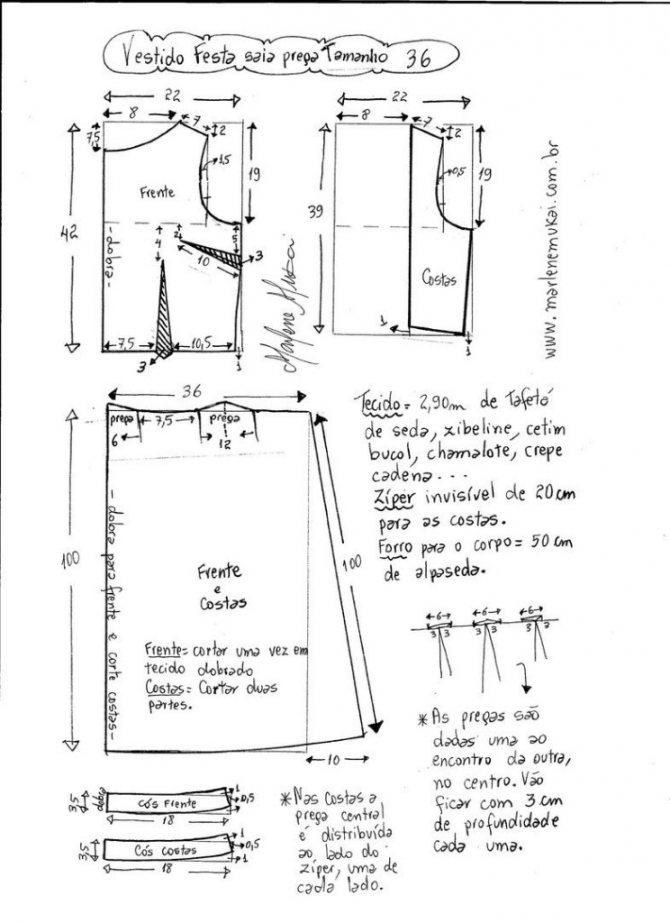 Vestido Festa saia prega Tamanho 36
22
8
7
2
7,5
1,5
19
Frente
42
- dobra -
4
2
5
3
10
7,5
10,5
3
1
22
8
7
2
0,5
19
39
Costas
1
1
Marlene Mukai
www.marlenemukai.com.br
36
prega
6
7,5
prega
12
100
100
- dobra para frente e corte costas -
Frente
e
Costas
Frente= cortar uma vez em
tecido dobrado
Costas= Cortar duas
partes.
10
Tecido= 2,90m de Tafetá
de seda, zibeline, cetim
bucol, chamalote, crepe
cadena...
Zíper invisível de 20cm
para as costas.
Forro para o corpo= 50 cm
de alpaseda.
6 6 6
3 3 3 3 3 3
*As pregas são
dadas uma ao
encontro da outra,
no centro. Vão
ficar com 3 cm
de profundidade
cada uma.
3,5
dobra
Cós Frente
1
0,5
18
3,5
Cós costas
1
0,5
1
18
*Nas Costas a
prega central
é distribuída
ao lado do
zíper, uma de
cada lado.